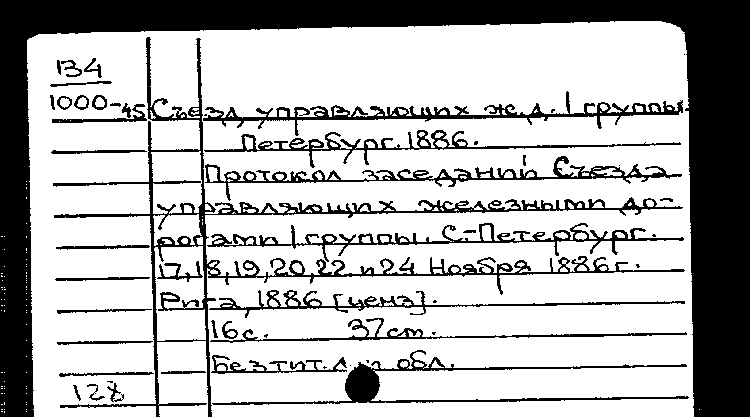 134
1000-45 Съезд управляющих ж.д. I группы.
Петербург. 1886.
Протокол заседаний Съезда
управляющих железными до-
рогами I группы. С.-Петербург.
17,18,19,20,22 и 24 Ноября 1886г.
Рига, 1886 [цена].
16с. 37cm.
Без тит. л. и обл.
128